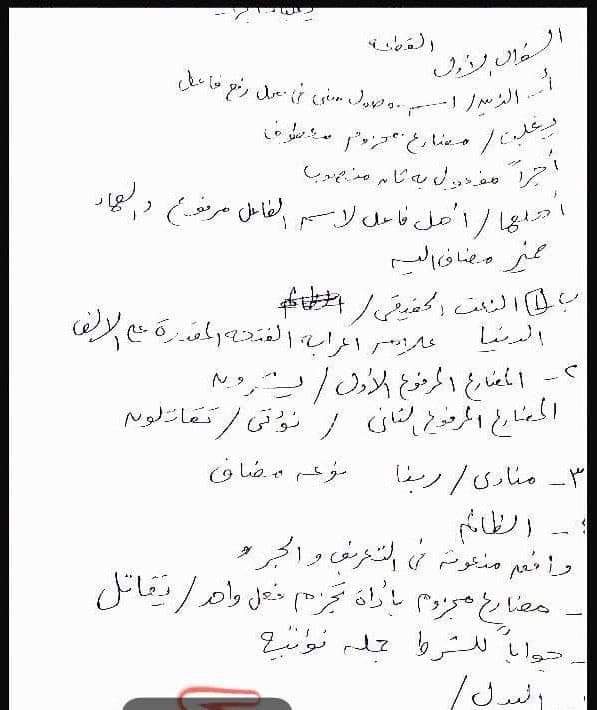 السؤال الأول القطعة
أ- الذين/ اسم موصول مبنى فى محل رفع فاعل
يغلب/ مضارع مجزوم معطوف
أجراً مفعول به ثان منصوب
أهلها/ أهل فاعل لاسم الفاعل مرفوع والهاء
ضمير مضاف اليه
ب ① النعت الحقيقى/
الدنيا علامه اعرابه الفتحه المقدرة على الالف
٢- المضارع المرفوع الأول/ يشرون
المضارع المرفوع الثانى / نؤتى/ تقاتلون
٣- منادى/ ربنا نوعه مضاف
٤- الظالم
وافق منعوته فى التعريف والجر
- مضارع مجزوم بأداة تجزم فعل واحد/ يقاتل
- جواباً للشرط جمله نؤتيه
البدل/